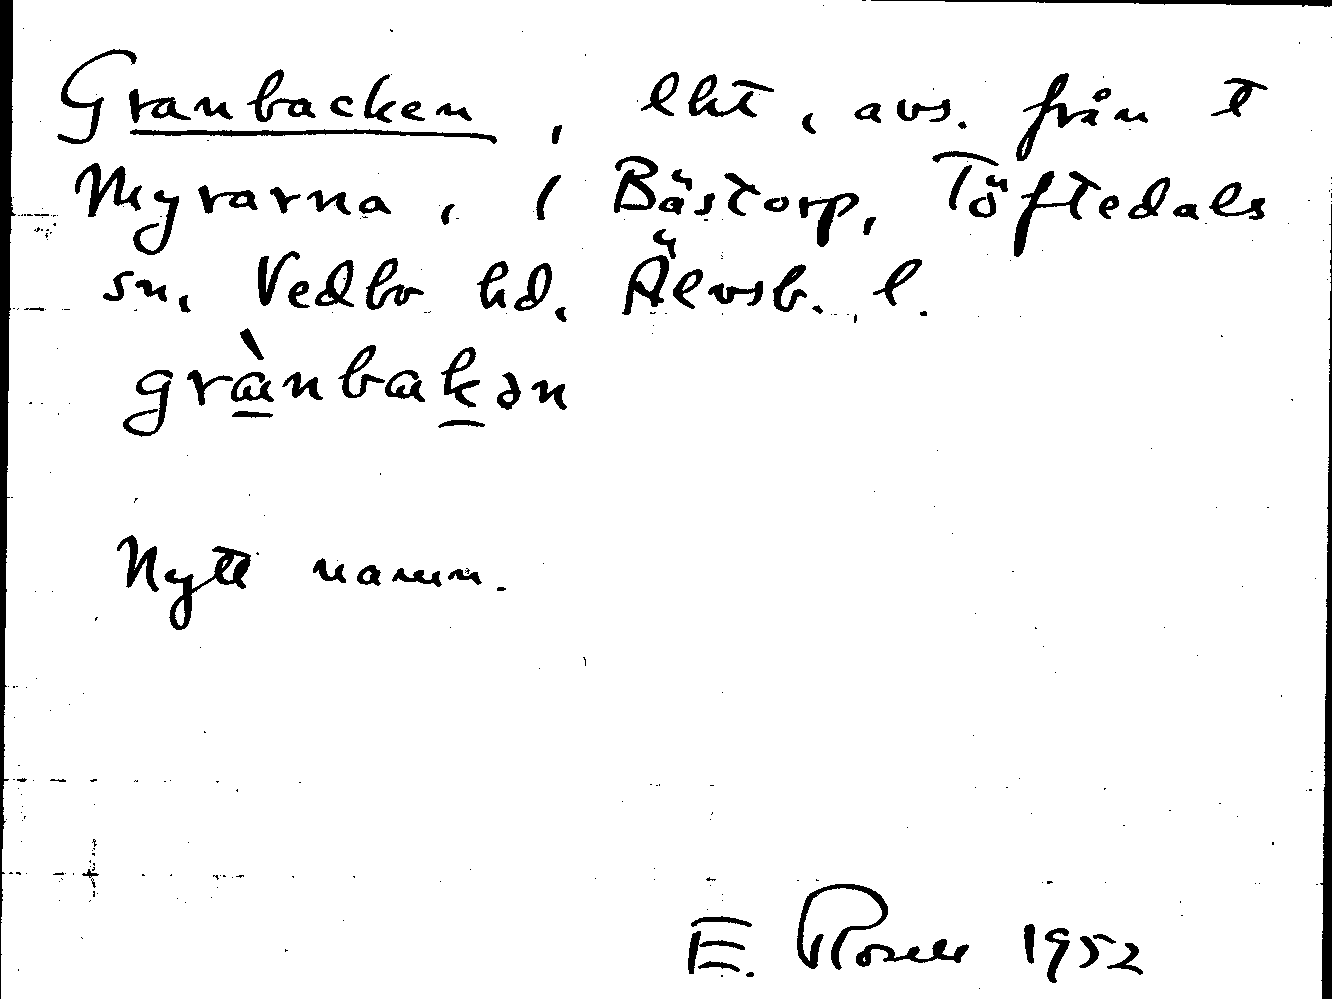 Granbacken, lht, avs. från t
Myrarna, i Bästorp, Töftedals
sn, Vedbo hd, Älvsb. l.
grànbakən
Nytt namn.
E. Rosell 1952